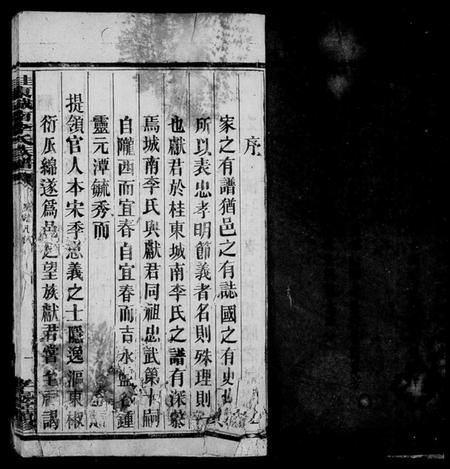 序
家之有譜猶邑之有誌國之有史
所以表忠孝明節義者名則殊理則
也獻君於桂東城南李氏之譜有深慕
焉城南李氏與獻君同祖忠武第十嗣
自隴西而宜春自宜春而吉永盤谷鍾
靈元潭毓秀而
提領官人本宋季忠義之士隱逸漚東椒
衍瓜綿遂為邑之望族獻君嘗至戶謁
桂東城南李氏族譜